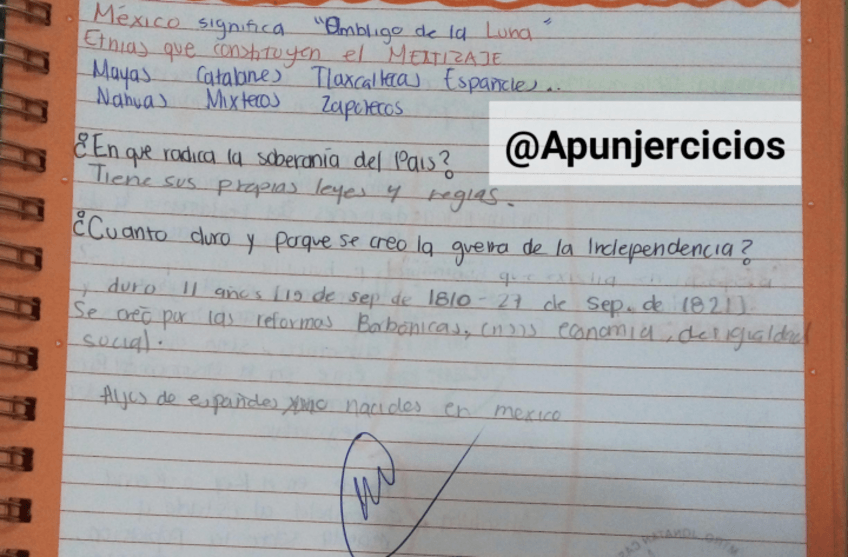 México significa "Ombligo de la Luna"
Etnias que constituyen el MEZTIZAJE
Mayas Catalanes Tlaxcaltecas Españoles..
Nahuas Mixtecos Zapotecos
@Apunjercicios
¿En que radica la soberanía del País?
Tiene sus propias leyes y reglas.
¿Cuanto duro y porque se creo la guerra de la Independencia?
duro 11 años (19 de sep de 1810-27 de Sep. de 1821)
Se creó por las reformas Borbonicas, crisis economia, desigualdad
social.
de españoles nacidos en mexico